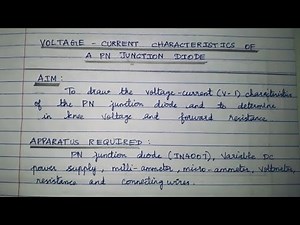 VOLTAGE - CURRENT CHARACTERISTICS OF
A PN JUNCTION DIODE
AIM:
To draw the voltage-current (V-I) characteristics
of the PN junction diode and to determine
in knee voltage and forward resistance.
APPARATUS REQUIRED:
PN junction diode (IN4007), Variable DC
power supply, milli-ammeter, micro-ammeter, voltmeter,
resistance and connecting wires.